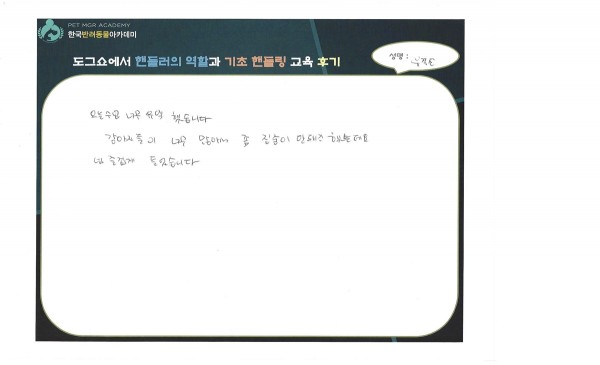 PET MGR ACADEMY
한국반려동물아카데미
도그쇼에서 핸들러의 역할과 기초 핸들링 교육 후기
성명 :
오늘 수업 너무 했습니다
강아지들이 너무 많아서 좀 집중이 안되긴 했는데요
즐겁게 들었습니다